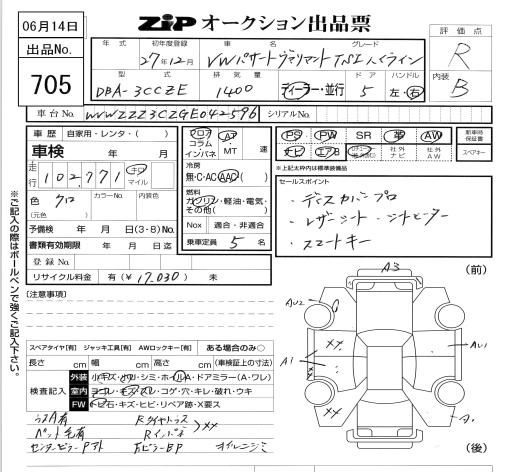 06月14日
ZIP オークション出品票
出品No.
705
評価点
R
内装
B
年式 初年度登録 車名 グレード
27年12月 VWパサートヴァリアント TSIハイライン
型式 排気量 ドア ハンドル
DBA-3CCZE 1400 ディーラー・並行 5 左・右
車台No. WVWZZZ3CZGE042596 シリアルNo.
車歴 自家用・レンタ・( )
車検 年 月
走行 102,771 キロ マイル
色 クロ カラーNo. 内装色
(元色)
予備検 年 月 日(3・8)No.
書類有効期限 年 月 日迄
登録No.
リサイクル料金 有(¥17,030) 未
フロア コラム インパネ
AT MT 速
冷房
無・C・AC・AAC( )
燃料
ガソリン・軽油・電気・その他( )
Nox 適合・非適合
乗車定員 5 名
PS PW SR 革 AW
ナビ エアB 社外ナビ 社外AW
新車時保証書
スペアキー
*上記太枠内は標準装備品
セールスポイント
・ディスカバープロ
・レザーシート・シートヒーター
・スマートキー
※ご記入の際はボールペンで強くご記入下さい。
[注意事項]
スペアタイヤ[有] ジャッキ工具[有] AWロックキー[有] ある場合のみ○
長さ cm 幅 cm 高さ cm (車検証上の寸法)
検査記入
外装 小キズ・凹・シミ・ホイールA・ドアミラー(A・ワレ)
室内 ヨゴレ・キズ・スレ・コゲ・穴・キレ・破れ・ウキ
FW トビ石・キズ・ヒビ・リペア跡・X要ス
ペット毛有
オイルニジミ
A3
(前)
AU2
A1
AU1
××
××
(後)